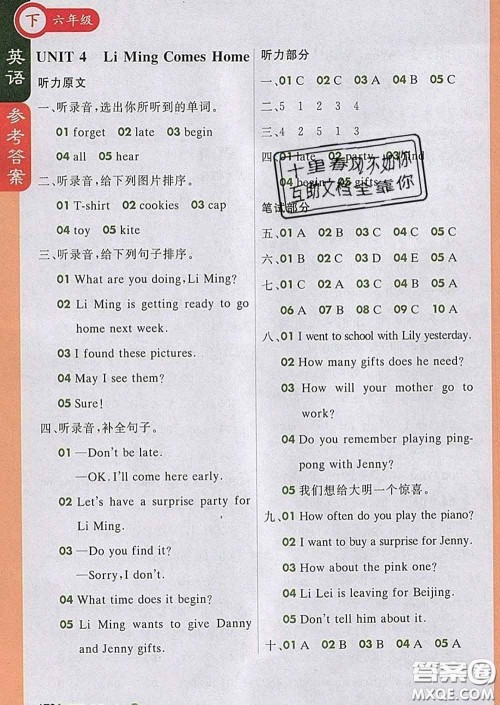 下 六年级
英语
参考答案
UNIT 4 Li Ming Comes Home
听力原文
一、听录音,选出你所听到的单词。
01 forget 02 late 03 begin
04 all 05 hear
二、听录音,给下列图片排序。
01 T-shirt 02 cookies 03 cap
04 toy 05 kite
三、听录音,给下列句子排序。
01 What are you doing, Li Ming?
02 Li Ming is getting ready to go
home next week.
03 I found these pictures.
04 May I see them?
05 Sure!
四、听录音,补全句子。
01 —Don't be late.
—OK. I'll come here early.
02 Let's have a surprise party for
Li Ming.
03 —Do you find it?
—Sorry, I don't.
04 What time does it begin?
05 Li Ming wants to give Danny
and Jenny gifts.
听力部分
一、01 C 02 C 03 A 04 B 05 C
二、5 1 2 3 4
三、4 2 5 1 3
四、01 late 02 party 03 find
04 begin 05 gifts
十里春风不如你
互助文档全靠你
笔试部分
五、01 A 02 B 03 C 04 B 05 C
六、01 C 02 B 03 D 04 E 05 A
七、01 C 02 A 03 B 04 C 05 B
06 A 07 B 08 C 09 C 10 A
八、01 I went to school with Lily yesterday.
02 How many gifts does he need?
03 How will your mother go to
work?
04 Do you remember playing ping-
pong with Jenny?
05 我们想给大明一个惊喜。
九、01 How often do you play the piano?
02 I want to buy a surprise for Jenny.
03 How about the pink one?
04 Li Lei is leaving for Beijing.
05 Don't tell him about it.
十、01 A 02 B 03 B 04 A 05 A
答案圈
MXQE.COM